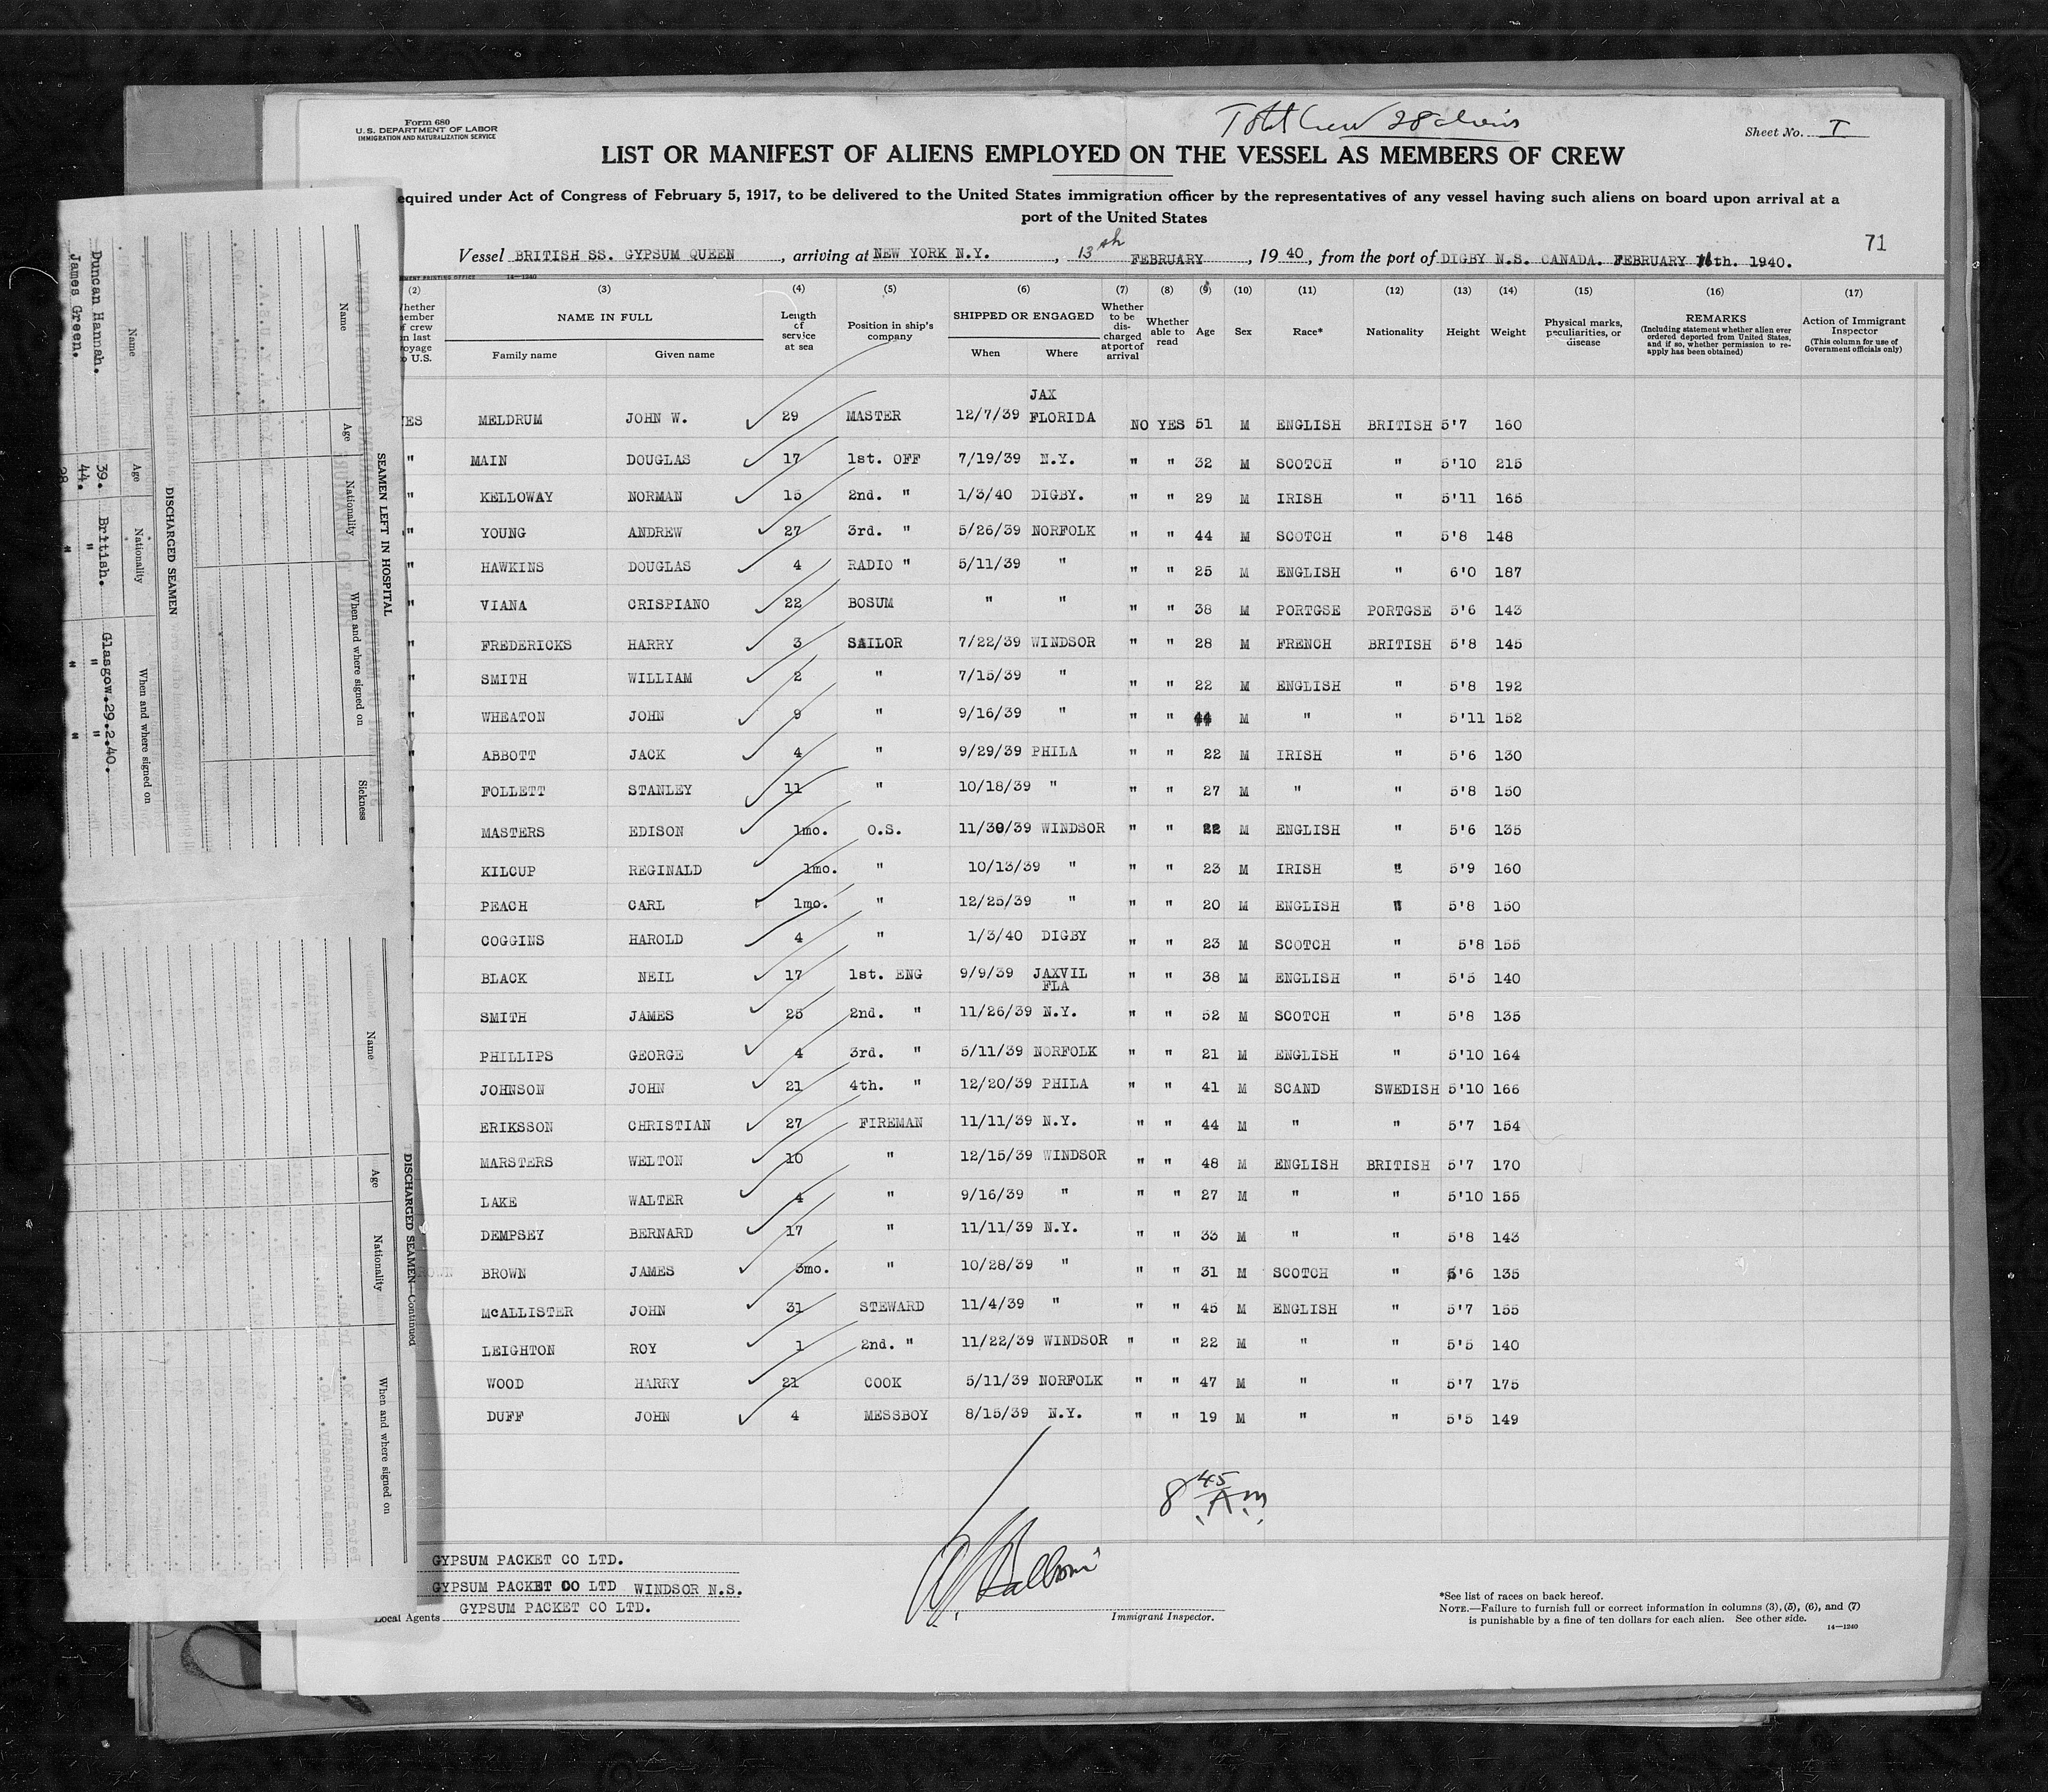 Form 680
U.S. DEPARTMENT OF LABOR
IMMIGRATION AND NATURALIZATION SERVICE
Total Crew 28 aliens
Sheet No. I
LIST OR MANIFEST OF ALIENS EMPLOYED ON THE VESSEL AS MEMBERS OF CREW
equired under Act of Congress of February 5, 1917, to be delivered to the United States immigration officer by the representatives of any vessel having such aliens on board upon arrival at a
port of the United States
71
Vessel BRITISH SS. GYPSUM QUEEN, arriving at NEW YORK N.Y., 13th FEBRUARY, 1940, from the port of DIGBY N.S. CANADA. FEBRUARY 11th. 1940.
(2) (3) (4) (5) (6) (7) (8) (9) (10) (11) (12) (13) (14) (15) (16) (17)
NAME IN FULL Length of service at sea Position in ship's company SHIPPED OR ENGAGED Whether to be discharged at port of arrival Whether able to read Age Sex Race* Nationality Height Weight Physical marks, peculiarities, or disease REMARKS (Including statement whether alien ever ordered deported from United States, and if so, whether permission to reapply has been obtained) Action of Immigrant Inspector (This column for use of Government officials only)
Family name Given name When Where
YES MELDRUM JOHN W. 29 MASTER 12/7/39 JAX FLORIDA NO YES 51 M ENGLISH BRITISH 5'7 160
" MAIN DOUGLAS 17 1st. OFF 7/19/39 N.Y. " " 32 M SCOTCH " 5'10 215
" KELLOWAY NORMAN 15 2nd. " 1/3/40 DIGBY. " " 29 M IRISH " 5'11 165
" YOUNG ANDREW 27 3rd. " 5/26/39 NORFOLK " " 44 M SCOTCH " 5'8 148
" HAWKINS DOUGLAS 4 RADIO " 5/11/39 " " " 25 M ENGLISH " 6'0 187
" VIANA CRISPIANO 22 BOSUM " " " " 38 M PORTGSE PORTGSE 5'6 143
" FREDERICKS HARRY 3 SAILOR 7/22/39 WINDSOR " " 28 M FRENCH BRITISH 5'8 145
" SMITH WILLIAM 2 " 7/15/39 " " " 22 M ENGLISH " 5'8 192
" WHEATON JOHN 9 " 9/16/39 " " " 44 M " " 5'11 152
" ABBOTT JACK 4 " 9/29/39 PHILA " " 22 M IRISH " 5'6 130
" FOLLETT STANLEY 11 " 10/18/39 " " " 27 M " " 5'8 150
" MASTERS EDISON 1mo. O.S. 11/30/39 WINDSOR " " 22 M ENGLISH " 5'6 135
" KILCUP REGINALD 1mo. " 10/13/39 " " " 23 M IRISH " 5'9 160
" PEACH CARL 1mo. " 12/25/39 " " " 20 M ENGLISH " 5'8 150
" COGGINS HAROLD 4 " 1/3/40 DIGBY " " 23 M SCOTCH " 5'8 155
" BLACK NEIL 17 1st. ENG 9/9/39 JAXVIL FLA " " 38 M ENGLISH " 5'5 140
SMITH JAMES 25 2nd. " 11/26/39 N.Y. " " 52 M SCOTCH " 5'8 135
PHILLIPS GEORGE 4 3rd. " 5/11/39 NORFOLK " " 21 M ENGLISH " 5'10 164
JOHNSON JOHN 21 4th. " 12/20/39 PHILA " " 41 M SCAND SWEDISH 5'10 166
ERIKSSON CHRISTIAN 27 FIREMAN 11/11/39 N.Y. " " 44 M " " 5'7 154
MARSTERS WELTON 10 " 12/15/39 WINDSOR " " 48 M ENGLISH BRITISH 5'7 170
LAKE WALTER 4 " 9/16/39 " " " 27 M " " 5'10 155
DEMPSEY BERNARD 17 " 11/11/39 N.Y. " " 33 M " " 5'8 143
BROWN JAMES 3mo. " 10/28/39 " " " 31 M SCOTCH " 5'6 135
McALLISTER JOHN 31 STEWARD 11/4/39 " " " 45 M ENGLISH " 5'7 155
LEIGHTON ROY 1 2nd. " 11/22/39 WINDSOR " " 22 M " " 5'5 140
WOOD HARRY 21 COOK 5/11/39 NORFOLK " " 47 M " " 5'7 175
DUFF JOHN 4 MESSBOY 8/15/39 N.Y. " " 19 M " " 5'5 149
8 45 A.M.
GYPSUM PACKET CO LTD.
GYPSUM PACKET CO LTD WINDSOR N.S.
Local Agents GYPSUM PACKET CO LTD.
Immigrant Inspector.
*See list of races on back hereof.
NOTE.—Failure to furnish full or correct information in columns (3), (5), (6), and (7)
is punishable by a fine of ten dollars for each alien. See other side.
14—1240
SEAMEN LEFT IN HOSPITAL
Name Age Nationality When and where signed on Sickness
DISCHARGED SEAMEN
Name Age Nationality When and where signed on
Duncan Hannah. 39. British. Glasgow.29.2.40.
James Green. 44. " " "
DISCHARGED SEAMEN—Continued
Name Age Nationality When and where signed on